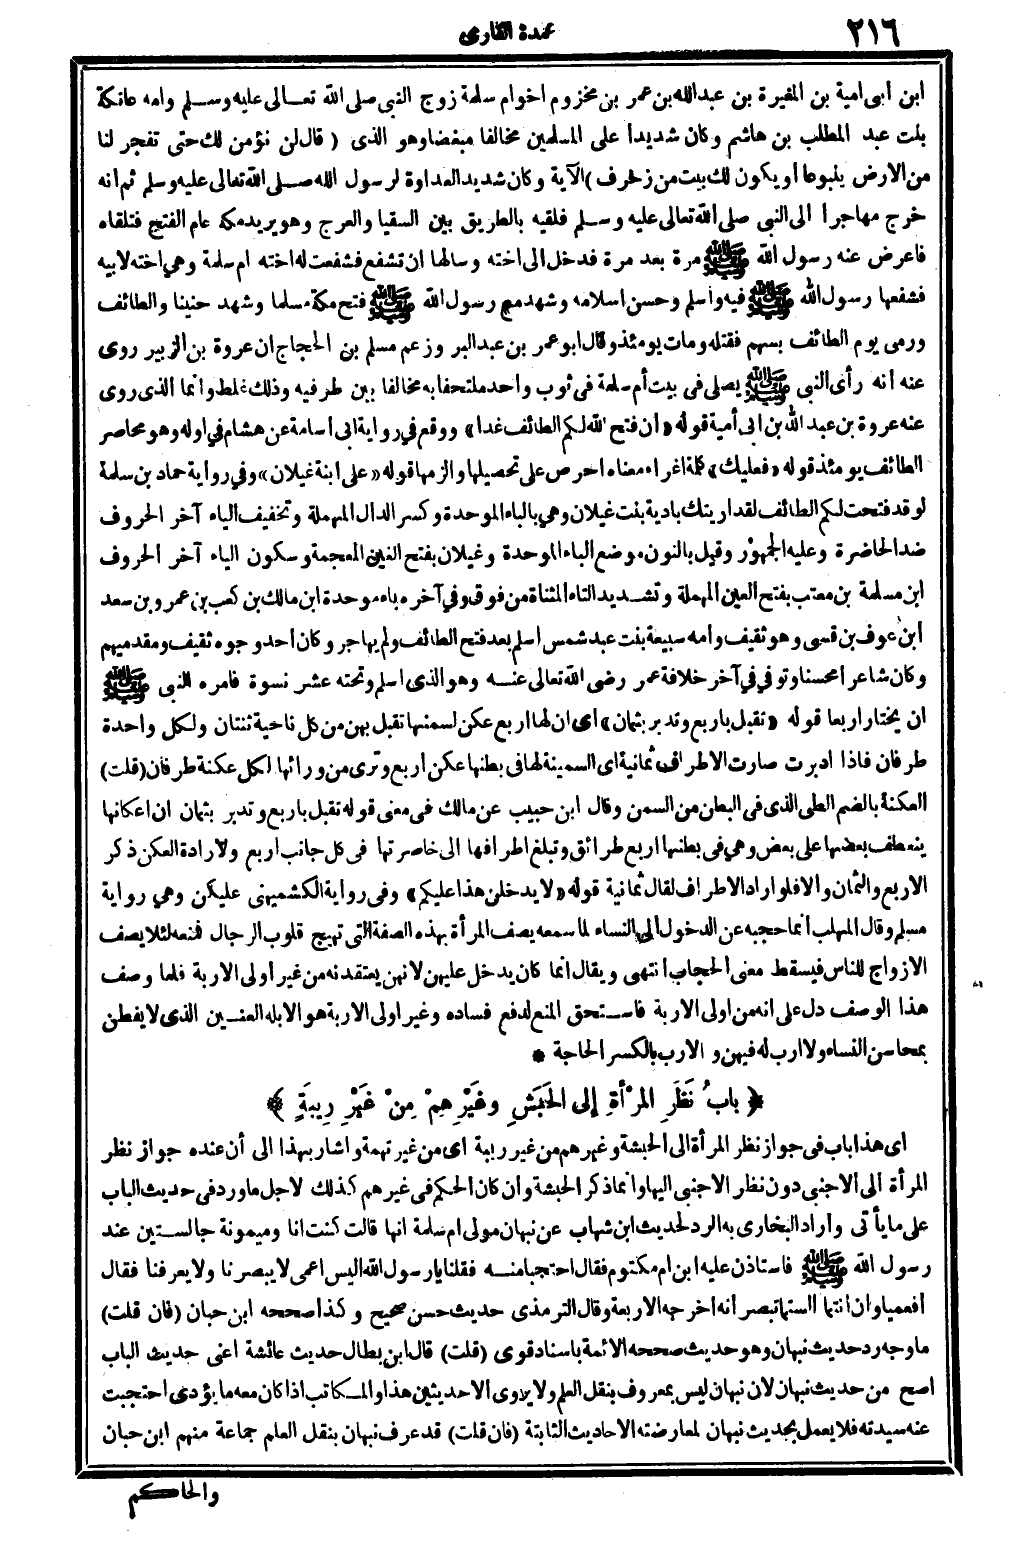 ٢١٦
عمدة القارى
ابن أبى أمية بن المغيرة بن عبدالله بن عمر بن مخزوم اخو ام سلمة زوج النبى صلى الله تعالى عليه وسلم وامه عاتكة
بنت عبد المطلب بن هاشم وكان شديدا على المسلمين مخالفا مبغضا وهو الذى (قال لن نؤمن لك حتى تفجر لنا
من الارض ينبوعا أو يكون لك بيت من زخرف) الآية وكان شديد العداوة لرسول الله صلى الله تعالى عليه وسلم ثم أنه
خرج مهاجرا الى النبى صلى الله تعالى عليه وسلم فلقيه بالطريق بين السقيا والعرج وهو يريد مكة عام الفتح فتلقاه
فاعرض عنه رسول الله ﷺ مرة بعد مرة فدخل الى اخته وسالها ان تشفع فشفعت له اخته ام سلمة وهي اخته لابيه
فشفعها رسول الله ﷺ فيه واسلم وحسن اسلامه وشهد مع رسول الله ﷺ فتح مكة مسلما وشهد حنينا والطائف
ورمى يوم الطائف بسهم فقتله ومات يومئذ وقال ابو عمر بن عبد البر وزعم مسلم بن الحجاج ان عروة بن الزبير روى
عنه انه رأى النبى ﷺ يصلى فى بيت أم سلمة فى ثوب واحد ملتحفا به مخالفا بين طرفيه وذلك غلط وانما الذى روى
عنه عروة بن عبد الله بن ابى أمية قوله «ان فتح الله لكم الطائف غدا» ووقع في رواية ابى أسامة عن هشام في اوله وهو محاصر
الطائف يومئذ قوله «فعليك» كلمة اغراء معناه احرص على تحصيلها والزمها قوله «على ابنة غيلان» وفي رواية حماد بن سلمة
لو قد فتحت لكم الطائف لقد اريتك بادية بنت غيلان وهي بالباء الموحدة وكسر الدال المهملة وتخفيف الياء آخر الحروف
ضد الحاضرة وعليه الجمهور وقيل بالنون موضع الباء الموحدة وغيلان بفتح الغين المعجمة وسكون الياء آخر الحروف
ابن مسلمة بن معتب بفتح العين المهملة وتشديد التاء المثناة من فوق وفي آخره باء موحدة ابن مالك بن كعب بن عمرو بن سعد
ابن عوف بن قسى وهو ثقيف وأمه سبيعة بنت عبد شمس اسلم بعد فتح الطائف ولم يهاجر وكان أحد وجوه ثقيف ومقدميهم
وكان شاعرا محسنا وتوفي في آخر خلافة عمر رضى الله تعالى عنه وهو الذى اسلم وتحته عشر نسوة فامره النبى ﷺ
ان يختار اربعا قوله «تقبل باربع وتدبر بثمان» اى ان لها اربع عكن لسمنها تقبل بهن من كل ناحية ثنتان ولكل واحدة
طرفان فاذا ادبرت صارت الاطراف ثمانية اى السمينة لها فى بطنها عكن اربع وترى من ورائها لكل عكنة طرفان (قلت)
العكنة بالضم الطى الذى فى البطن من السمن وقال ابن حبيب عن مالك فى معنى قوله تقبل باربع وتدبر بثمان ان اعكانها
ينعطف بعضها على بعض وهي فى بطنها اربع طرائق وتبلغ اطرافها الى خاصرتها فى كل جانب اربع ولارادة العكن ذكر
الاربع والثمان والا فلو اراد الاطراف لقال ثمانية قوله «لا يدخلن هذا عليكم» وفى رواية الكشميهنى عليكن وهي رواية
مسلم وقال المهلب انما حجبه عن الدخول الى النساء لما سمعه يصف المرأة بهذه الصفة التى تهيج قلوب الرجال فمنعه لئلا يصف
الازواج للناس فيسقط معنى الحجاب انتهى ويقال انما كان يدخل عليهن لانهن يعتقدنه من غير اولى الاربة فلما وصف
هذا الوصف دل على انه من اولى الاربة فاستحق المنع لدفع فساده وغير اولى الاربة هو الابله العنين الذى لا يفطن
بمحاسن النساء ولا ارب له فيهن و الارب بالكسر الحاجة *
﴿ بابُ نَظَرِ المَرْأةِ إلى الحَبَشِ وغَيْرِهِمْ مِنْ غَيْرِ رِيبَةٍ ﴾
اى هذا باب فى جواز نظر المرأة الى الحبشة وغيرهم من غير ريبة اى من غير تهمة واشار بهذا الى أن عنده جواز نظر
المرأة الى الاجنبى دون نظر الاجنبى اليها وانما ذكر الحبشة وان كان الحكم فى غيرهم كذلك لاجل ما ورد فى حديث الباب
على ما يأتى وأراد البخارى به الرد لحديث ابن شهاب عن نبهان مولى ام سلمة انها قالت كنت انا وميمونة جالستين عند
رسول الله ﷺ فاستاذن عليه ابن ام مكتوم فقال احتجبا منه فقلنا يا رسول الله اليس اعمى لا يبصرنا ولا يعرفنا فقال
افعمياوان انتما ألستما تبصرانه اخرجه الاربعة وقال الترمذى حديث حسن صحيح وكذا صححه ابن حبان (فان قلت)
ما وجه رد حديث نبهان وهو حديث صححه الائمة باسناد قوى (قلت) قال ابن بطال حديث عائشة اعنى حديث الباب
اصح من حديث نبهان لان نبهان ليس بمعروف بنقل العلم ولا يروى الا حديثين هذا والمكاتب اذا كان معه ما يؤدى احتجبت
عنه سيدته فلا يعمل بحديث نبهان لمعارضته الاحاديث الثابتة (فان قلت) قد عرف نبهان بنقل العلم جماعة منهم ابن حبان
والحاكم